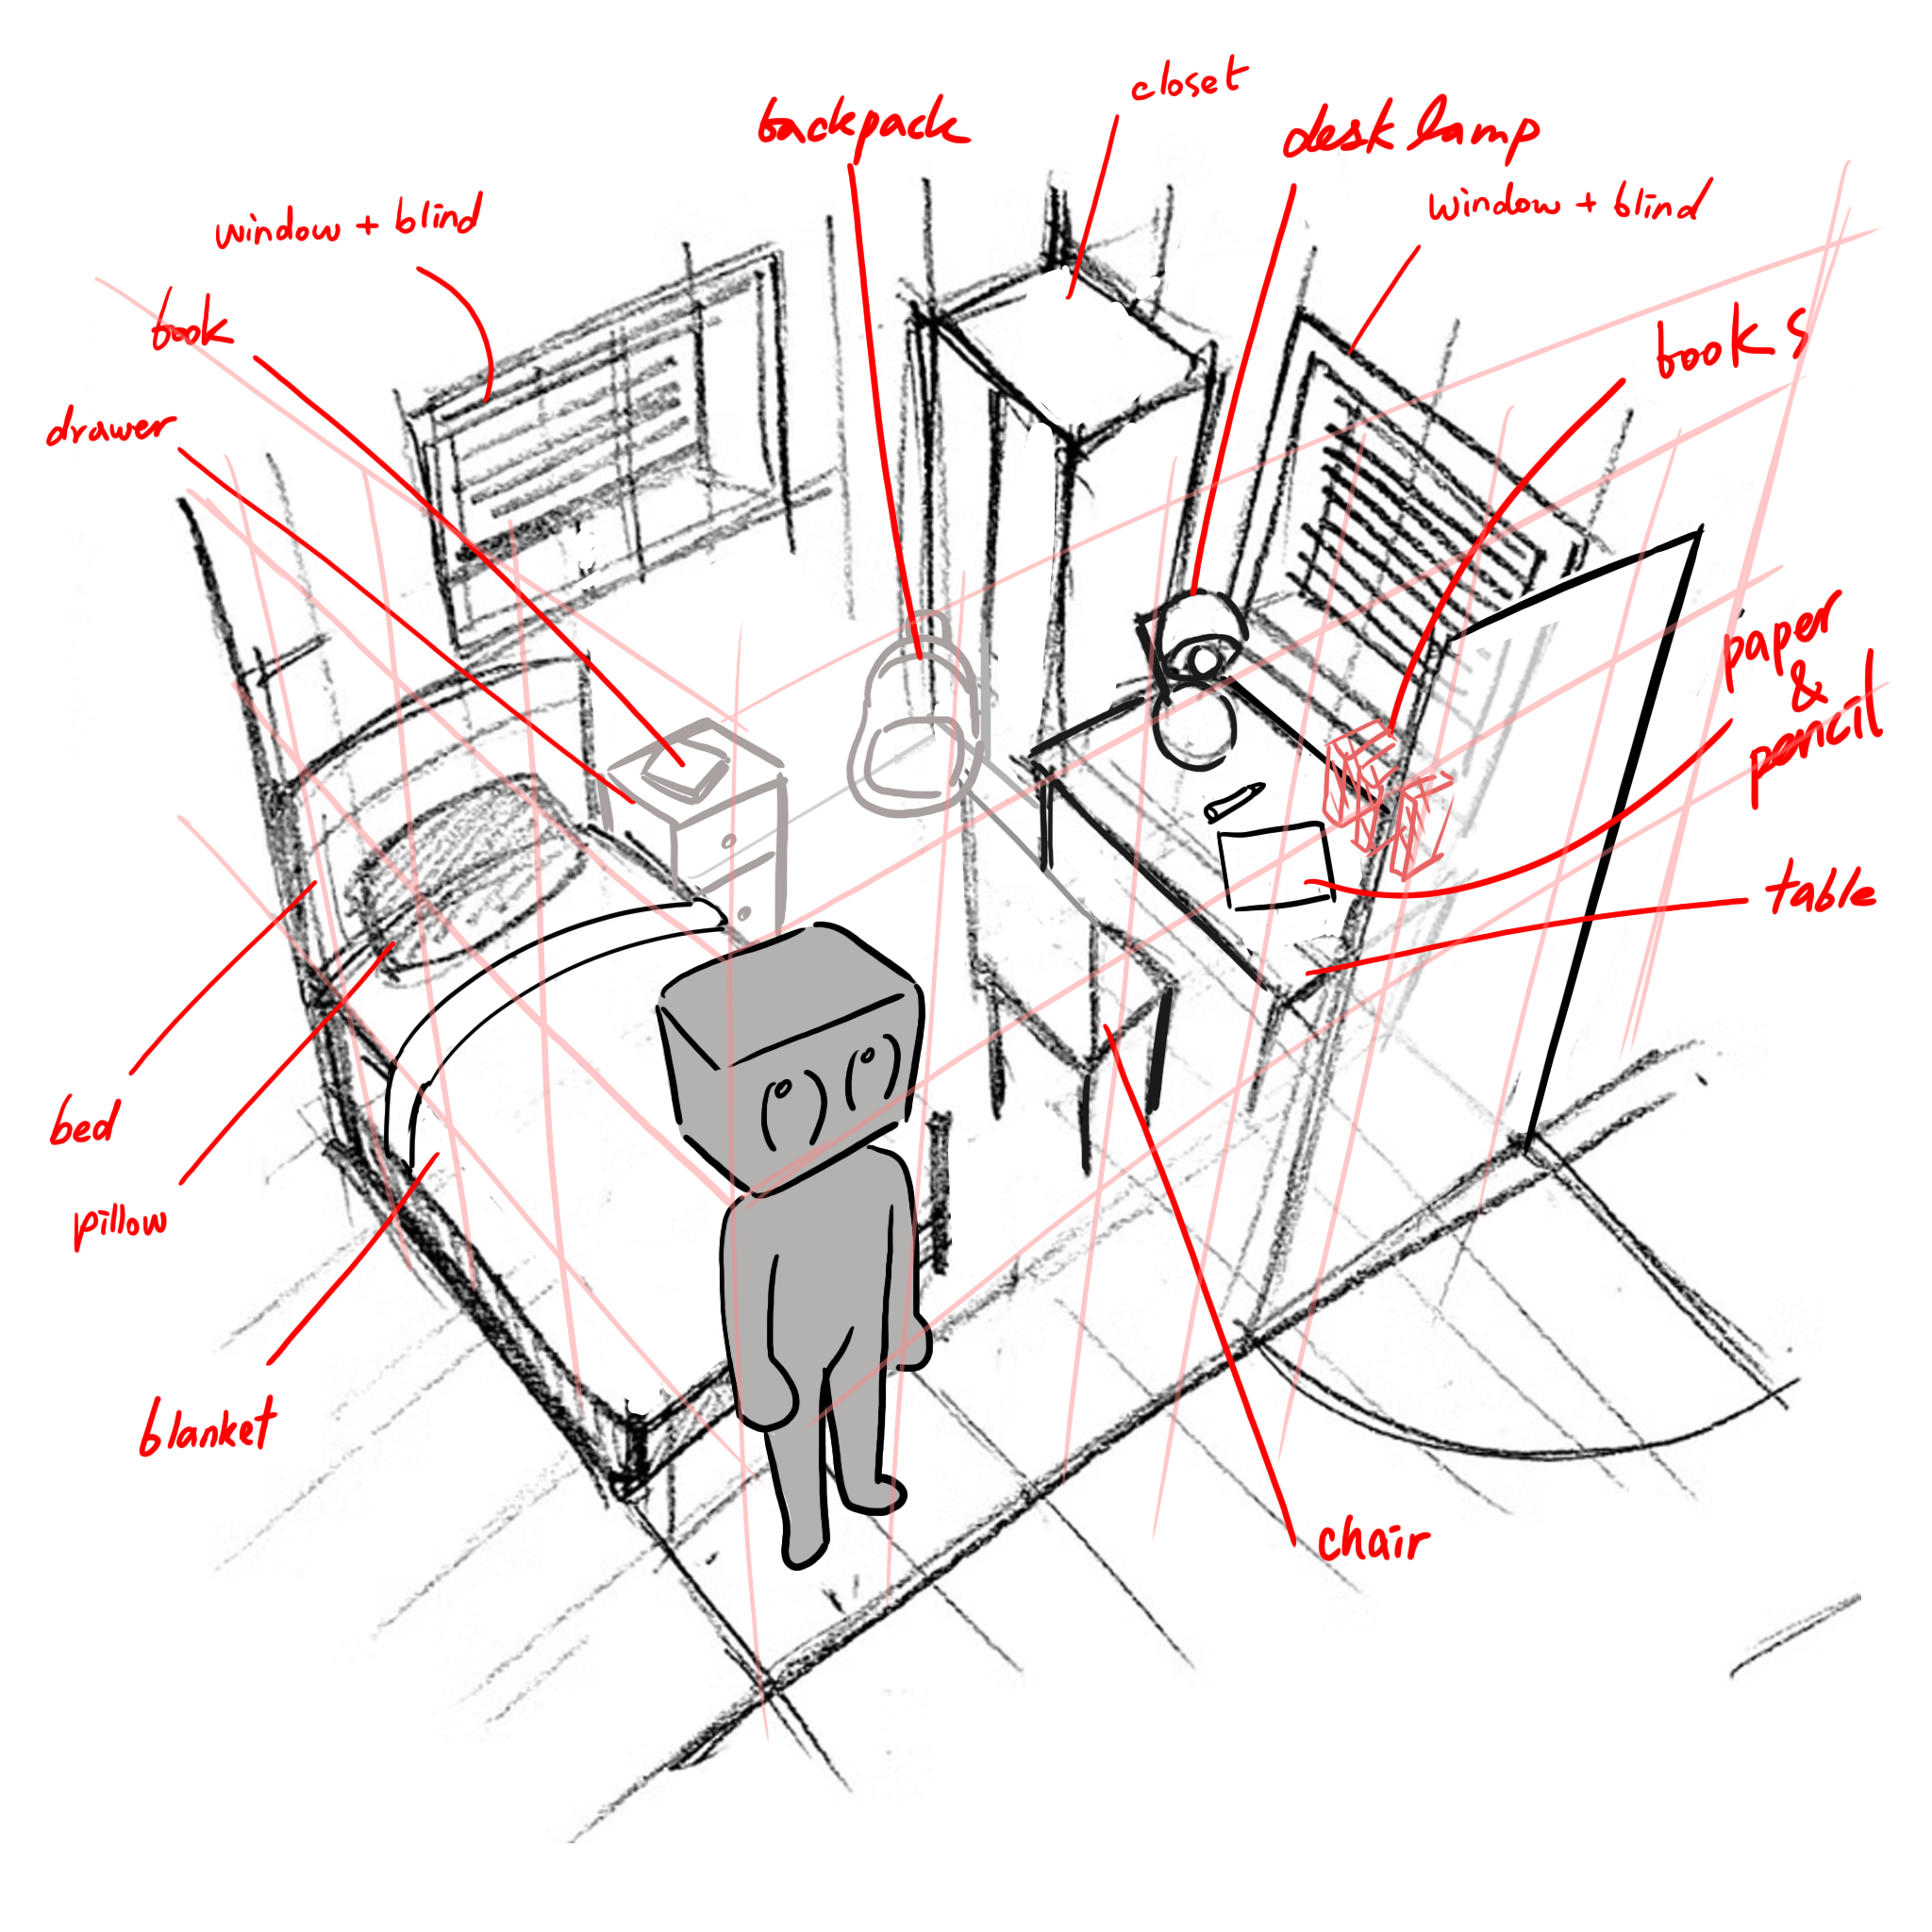 closet
backpack
desk lamp
window + blind
window + blind
book
books
drawer
paper
&
pencil
table
bed
pillow
blanket
chair